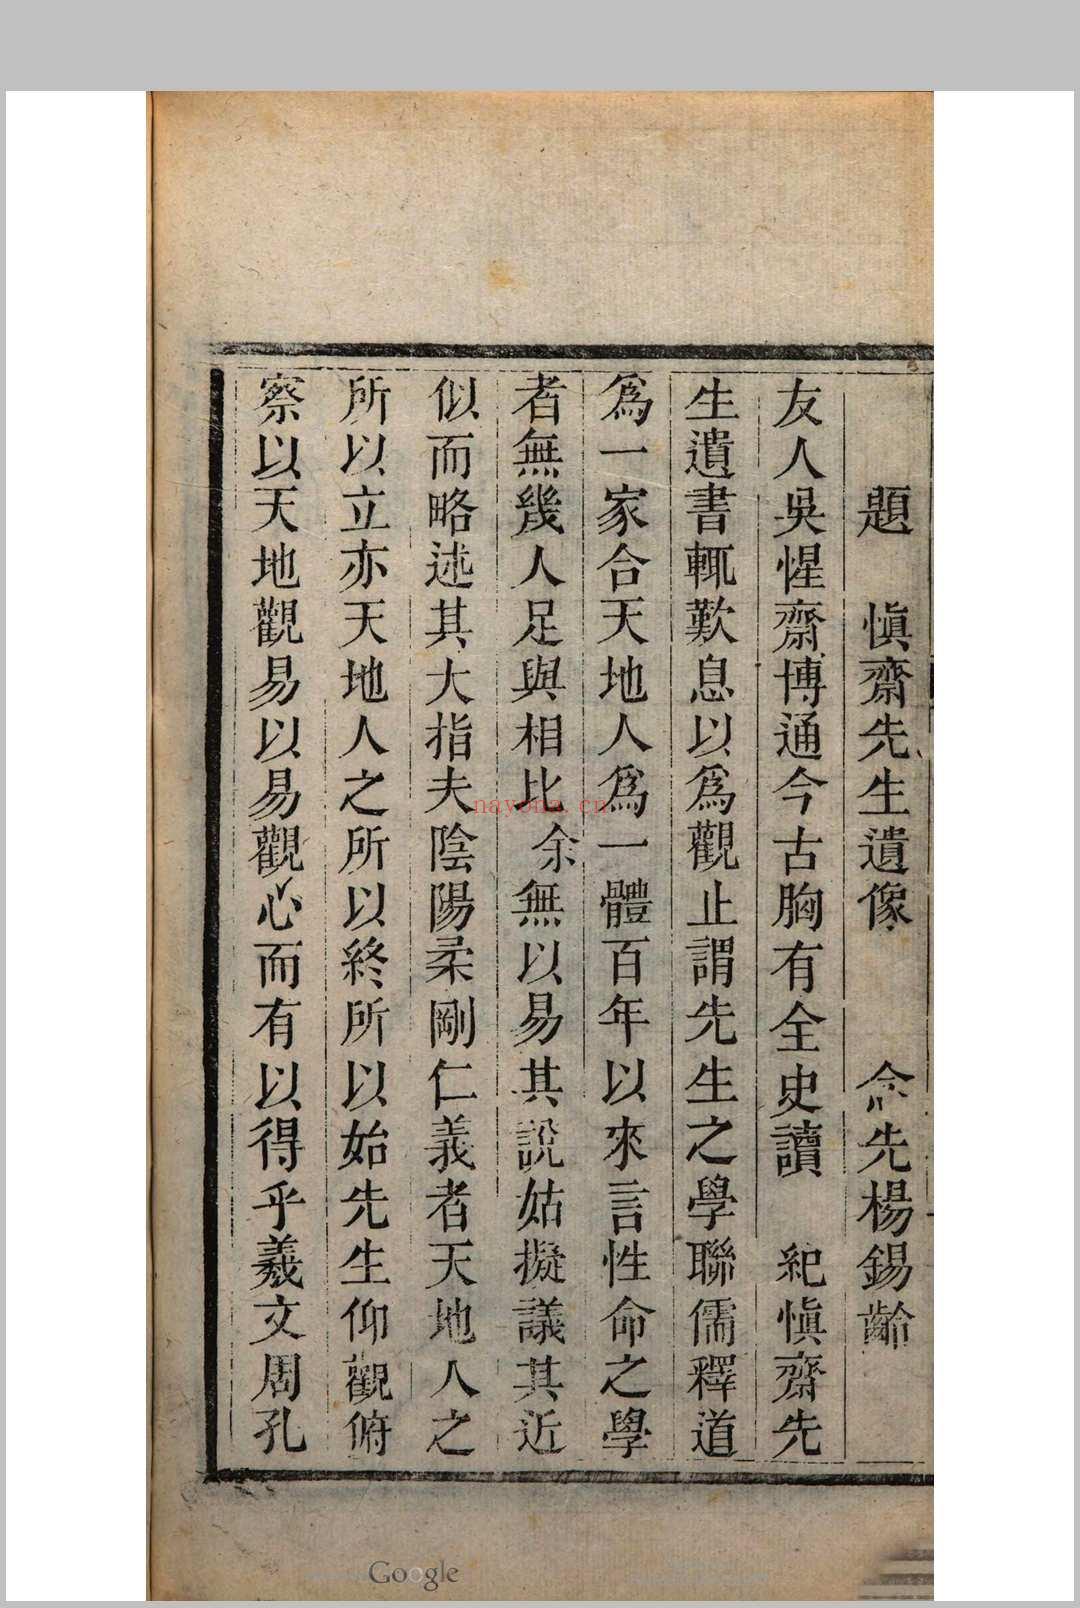 題　愼齋先生遺像　　念先楊錫齡
友人吳惺齋博通今古胸有全史讀　紀愼齋先
生遺書輒歎息以爲觀止謂先生之學聯儒釋道
爲一家合天地人爲一體百年以來言性命之學
者無幾人足與相比余無以易其說姑擬議其近
似而略述其大指夫陰陽柔剛仁義者天地人之
所以立亦天地人之所以終所以始先生仰觀俯
察以天地觀易以易觀心而有以得乎羲文周孔
nayona.cn
Google